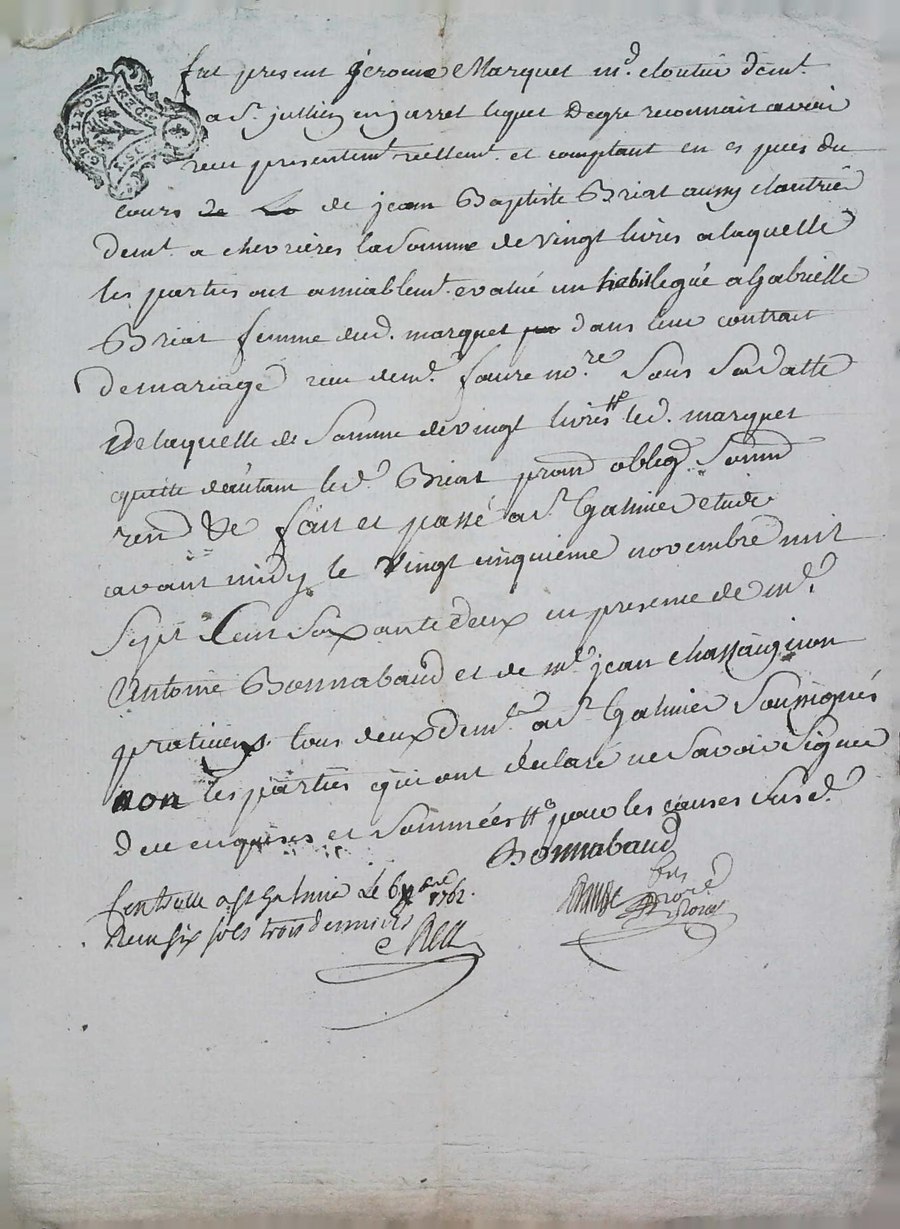 fut present Jerome Marquet m.d cloutier dem.t
a S.t jullien en jarret lequel de gre reconnait avoir
receu presentem.t reellem.t et comptant en espèces du
cours de La de jean Baptiste Briat aussy cloutrier
dem.t a chevrières la Somme de vingt livres a laquelle
les parties ont amiablem.t evalué un habit legué a Gabrielle
Briat femme dud. marquet pa dans leur contrait
de mariage receu de m.e faure no.re Sous Sa datte
de laquelle de Somme de vingt livres tt led. marquet
quitte dautant led.t Briat prom oblig Soum
ren &e fait et passé a S.t Galmier etude
avant midy le vingt cinquieme novembre mil
Sept Cent Soixante deux en presence de m.e
Antoine Bonnabaud et de m.e jean chassaignon
praticiens tous deux dem.t a S.t Galmier Soussignés
non les parties qui ont déclaré ne Savoir Signer
de ce enquises et Sommées tt pour les causes Susd.
Bonnabaud
Controlle a St Galmier le 6 xbre 1762.
Receu six sols trois denniers